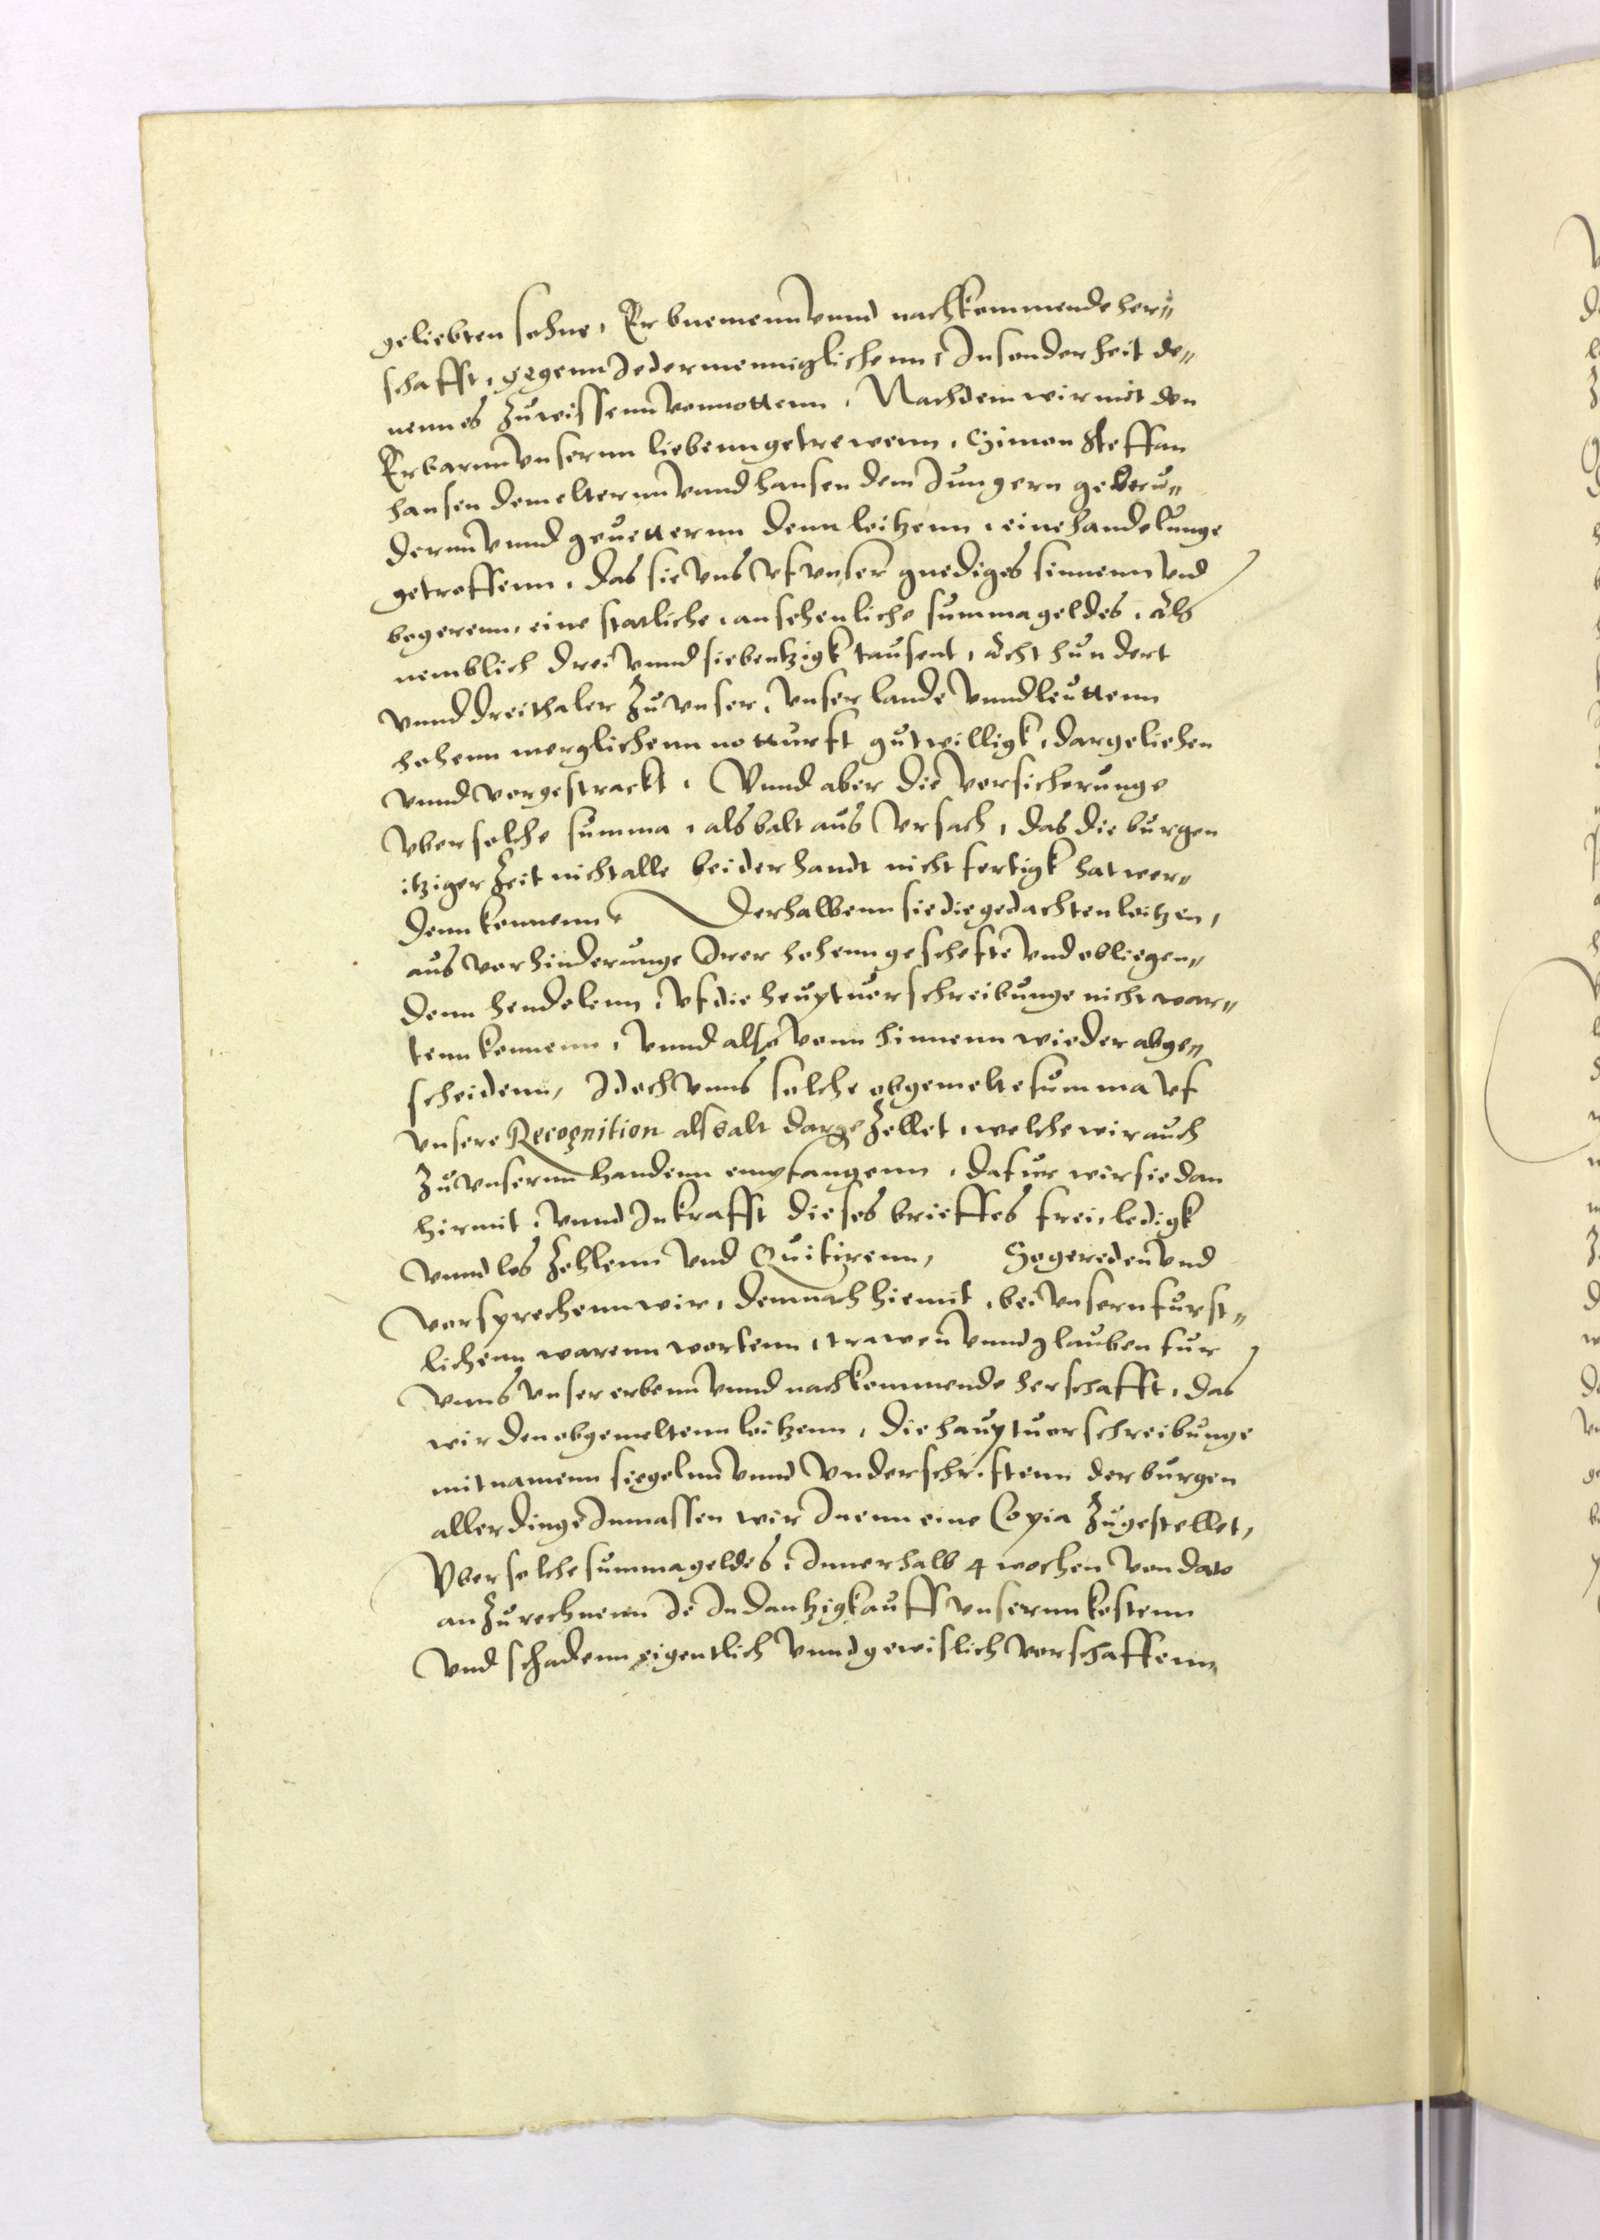 geliebten sohne, Erbnemenn vnnd nachkommende her„
schafft, gegenn Jedermenniglichenn, Jnsonderheit de„
nenn es zuwissenn vonnottenn, Nachdem wir mit den
Erbarnn vnsernn liebenn getrewenn, Simon Steffan
hansen dem elternn vnnd hansen dem Jungern gebru„
dernn vnnd geuetternn denn loitzenn, eine handelunge
getroffenn, das sie vns vf vnser gnediges sinnenn vnd
begerenn, eine statliche, ansehenliche summa geldes, als
nemblich drei vnnd siebentzigk tausent, acht hundert
vnnd drei thaler zu vnser, vnser lande vnnd leuttenn
hohenn merglichenn notturft gutwilligk, dargeliehen
vnnd vorgestrackt, Vnnd aber die vorsicherunge
vber solche summa, als balt aus vrsach, das die burgen
itziger zeit nicht alle bei der handt nicht fertigk hat wer„
denn konnenn, Derhalbenn sie die gedachten loitzen,
aus vorhinderunge Jrer hohenn geschefte vnd obliegen„
denn hendelenn, vf die heuptuorschreibunge nicht war„
tenn konnenn, vnnd also vonn hinnenn wieder abge„
scheidenn, Jdoch vnns solche obgemelte summa vf
vnsere Recognition als balt dargezellet, welche wir auch
zu vnsernn handenn empfangenn, dafur wir sie dan
hirmit, vnnd Jn krafft dieses brieffes frei, ledigk
vnnd los zehlenn vnd Quitirenn, So gereden vnd
vorsprechenn wir, demnach hiemit, bei vnsern furst„
lichenn warenn wortenn, trawen vnnd glauben fur
vnns vnser erbenn vnnd nachkommende herschafft, das
wir den obgemeltenn loitzenn, die hauptuorschreibunge
mit namenn siegelnn vnnd vnderschriftenn der burgen
aller dinge Jnmassen wir Jnenn eine Copia zugestellet,
Vber solche summa geldes, Jnnerhalb 4 wochen von dato
anzurechnenn Je Jn dantzigk auff vnsernn kostenn
vnd schadenn eigentlich vnnd gewislich vorschaffenn